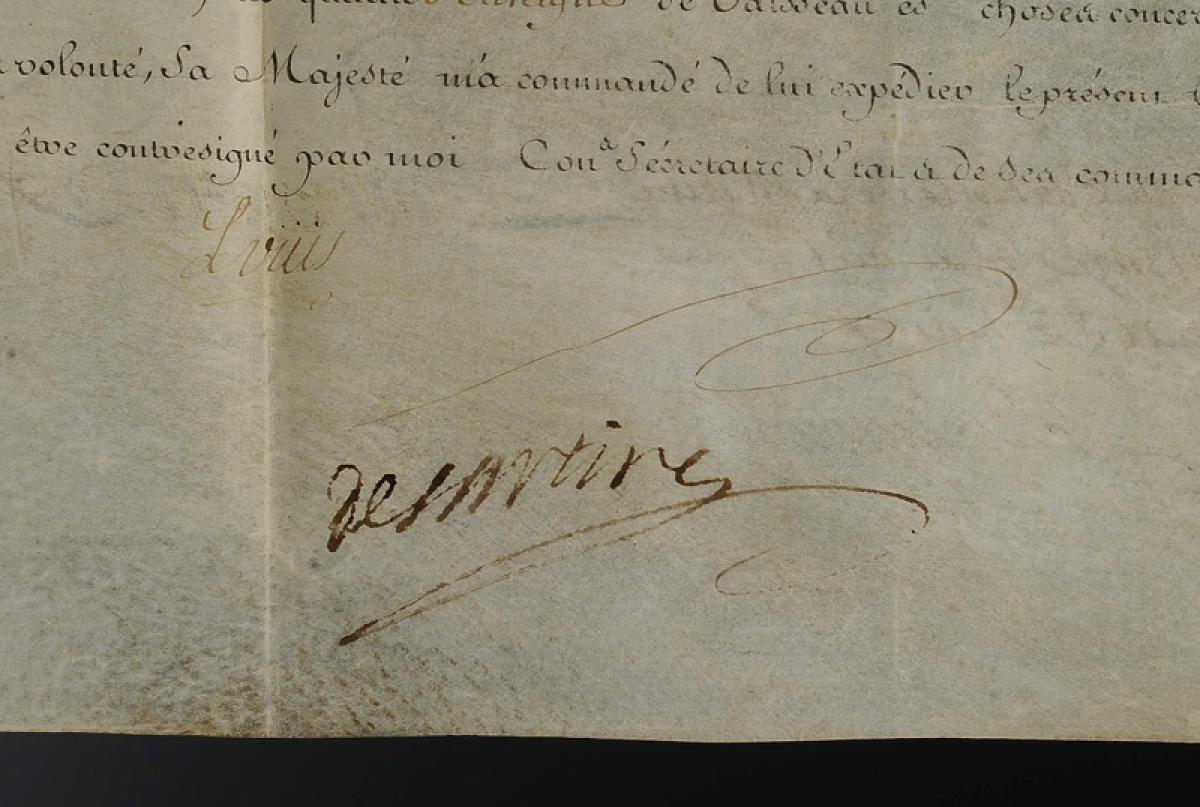 qualité d'enseigne de Vaisseau es choses concer
volonté, Sa Majesté m'a commandé de lui expédier le présent
être contresigné par moi Con.er Sécretaire d'Etat & de ses comma
Louis
de Sartine